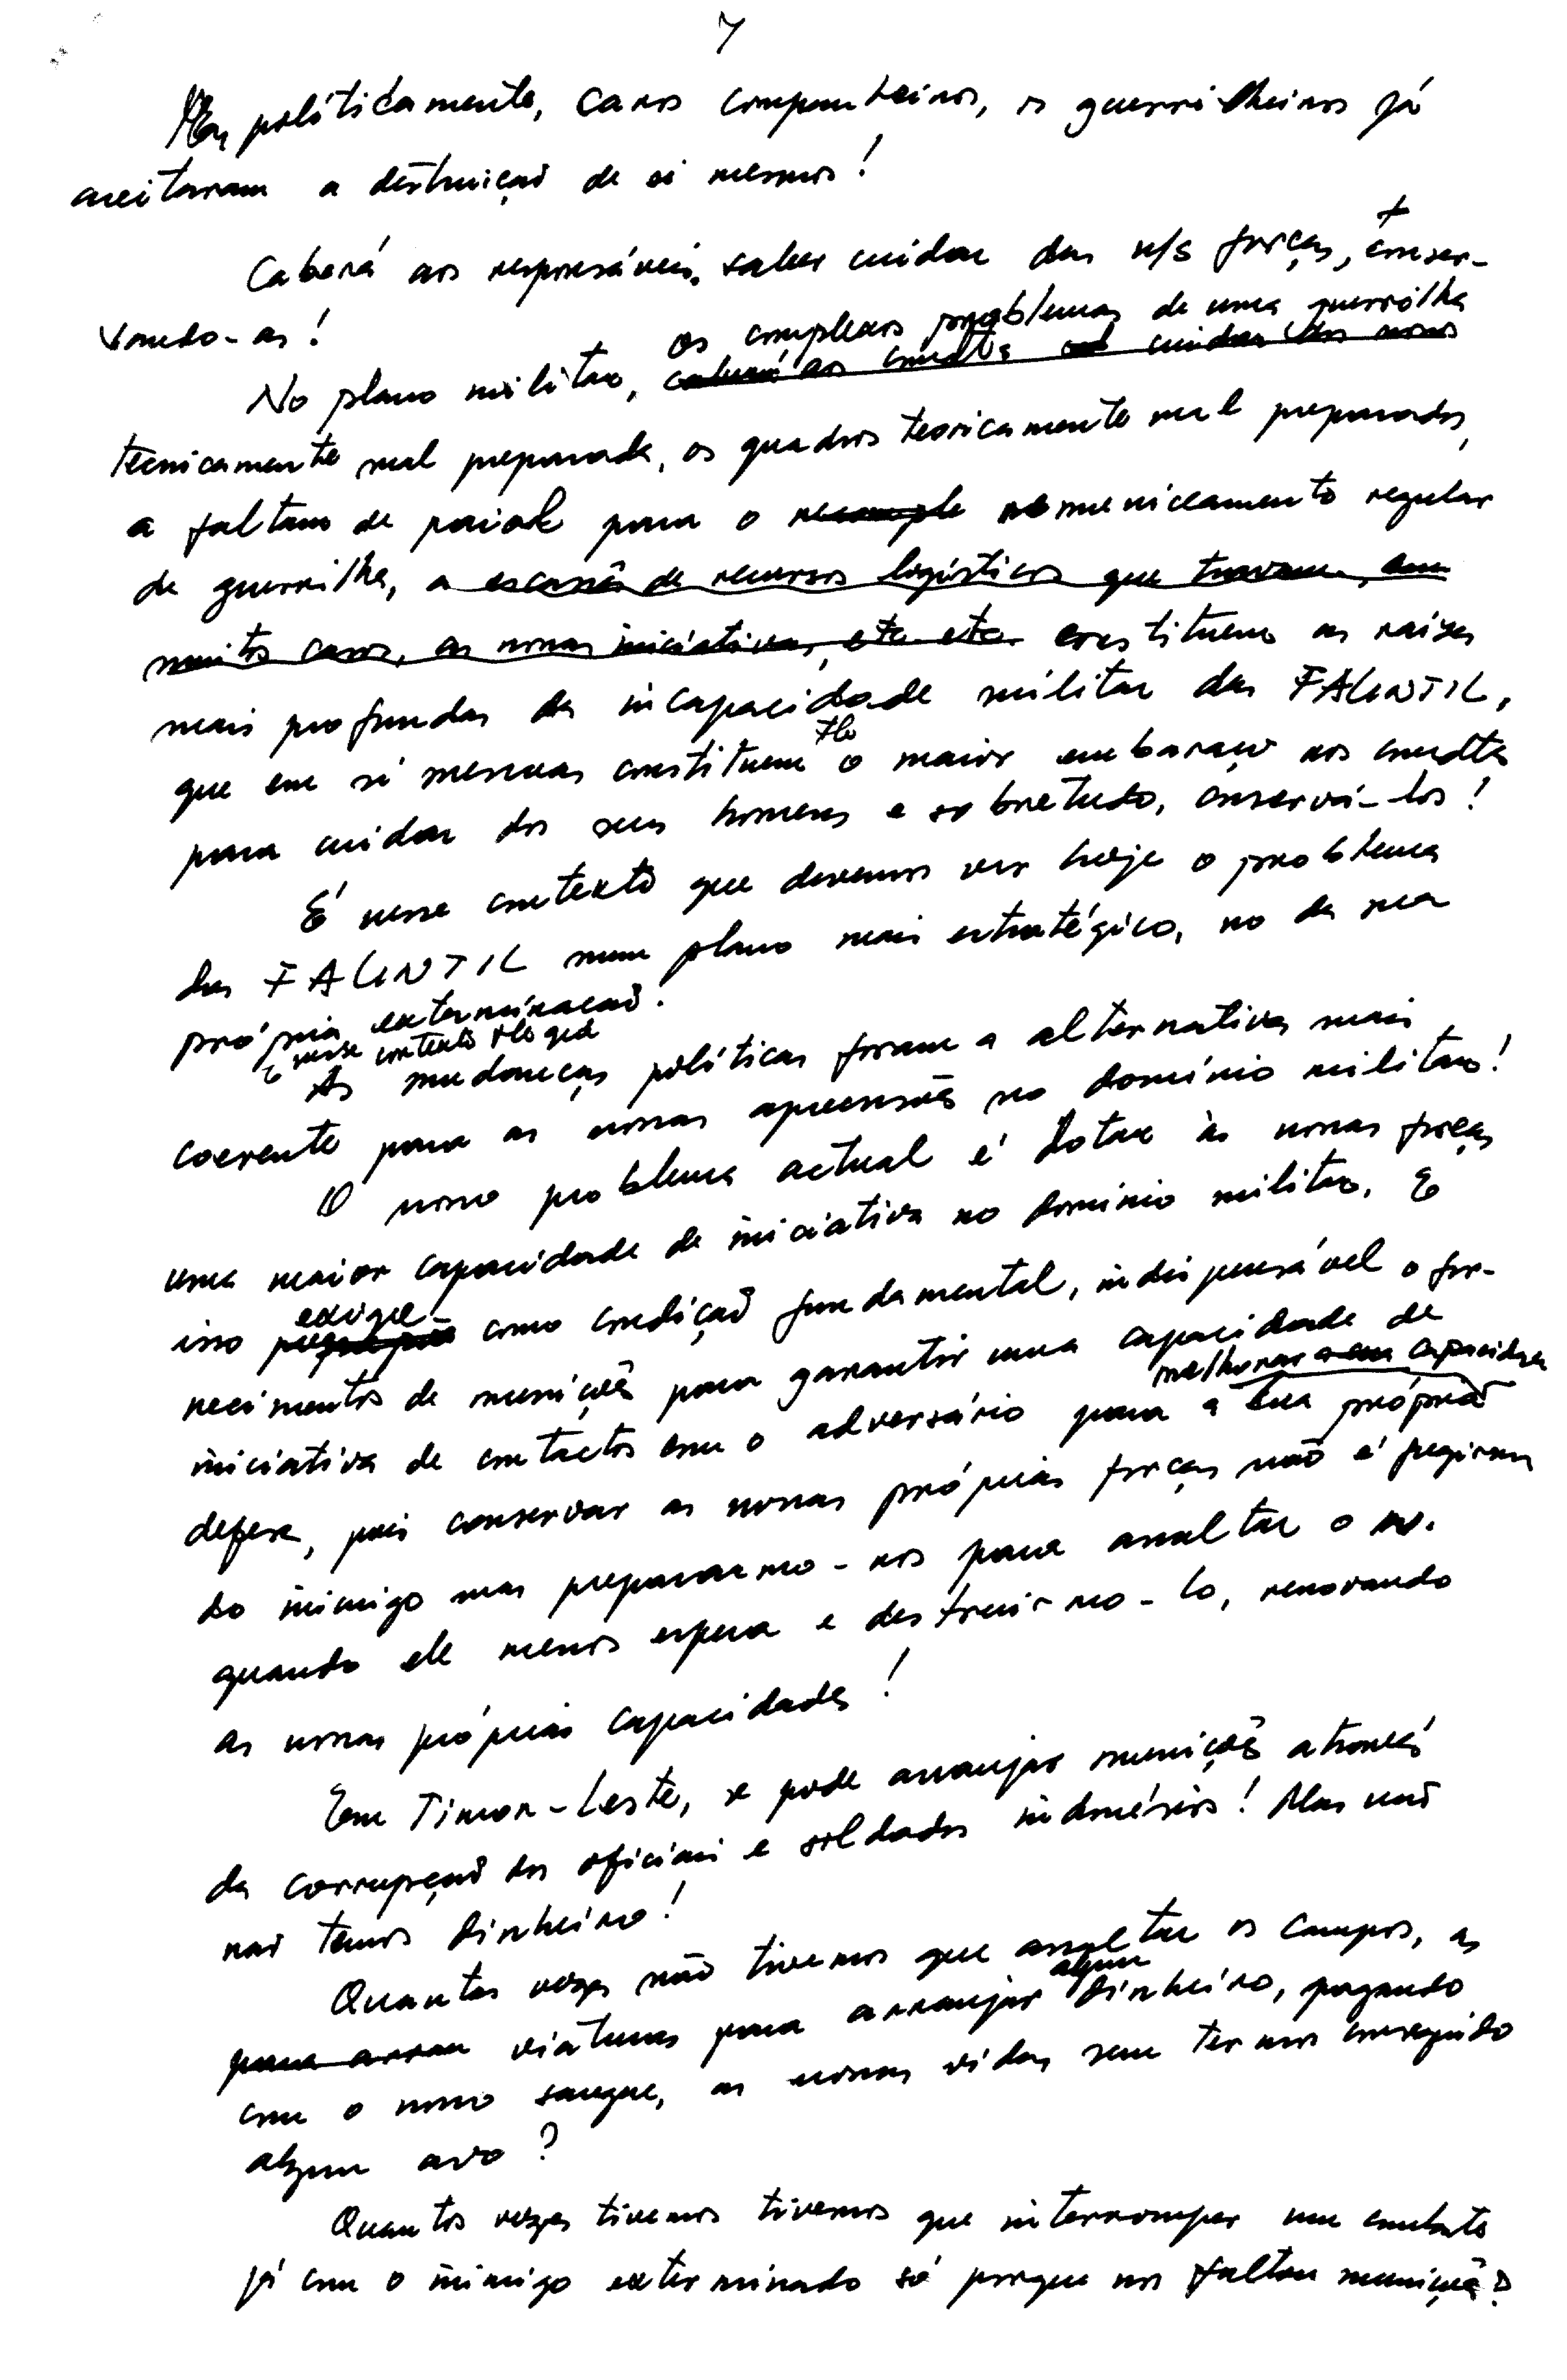 7
Mas políticamente, caros companheiros, os guerrilheiros já
aceitaram a destruição de si mesmos!
Caberá aos responsáveis saber cuidar das n/s forças, conser-
vando-as!
os complexos problemas de uma guerrilha
No plano militar, caberá aos cmdtes cuidar dos nossos
técnicamente mal preparada, os quadros teoricamente mal preparados,
a falta de paiok para o remuniciamento regular
de guerrilha, a escassês de recursos logísticos que travam, em
muitos casos, as nossas iniciativas, etc etc. constituem as raizes
mais profundas da incapacidade militar das FALINTIL,
que em si mesmas constituem tb o maior embaraço aos cmdtes
para cuidar dos seus homens e sobretudo, conservá-los!
É nesse contexto que devemos ver hoje o problema
das FALINTIL num plano mais estratégico, no da sua
própria exterminação!
E nesse contexto
As mudanças políticas foram a alternativa mais
coerente para as nossas apreensões no domínio militar!
O nosso problema actual é dotar às nossas forças
uma maior capacidade de iniciativa no domínio militar. E
exige-
isso como condição fundamental, indispensável o for-
necimentos de munições para garantir uma capacidade de
melhorar a sua capacidade
iniciativa de contactos com o adversário para a sua própria
defesa, pois conservar as nossas próprias forças não é fugirmos
do inimigo mas prepararmo-nos para assaltar o in.
quando ele menos espera e destruirmo-lo, renovando
as nossas próprias capacidades!
Em Timor-Leste, se pode arranjar munições através
da corrupção dos oficiais e soldados indonésios! Mas nós
não temos dinheiro!
Quantas vezes não tivemos que assaltar os campos, as
algum
para arran viaturas para arranjar dinheiro, pagando
com o nosso sangue, as nossas vidas sem termos conseguido
algum avo?
Quantos vezes tivemos tivemos que interromper um combate
já com o inimigo exterminado só porque nos faltou munições?